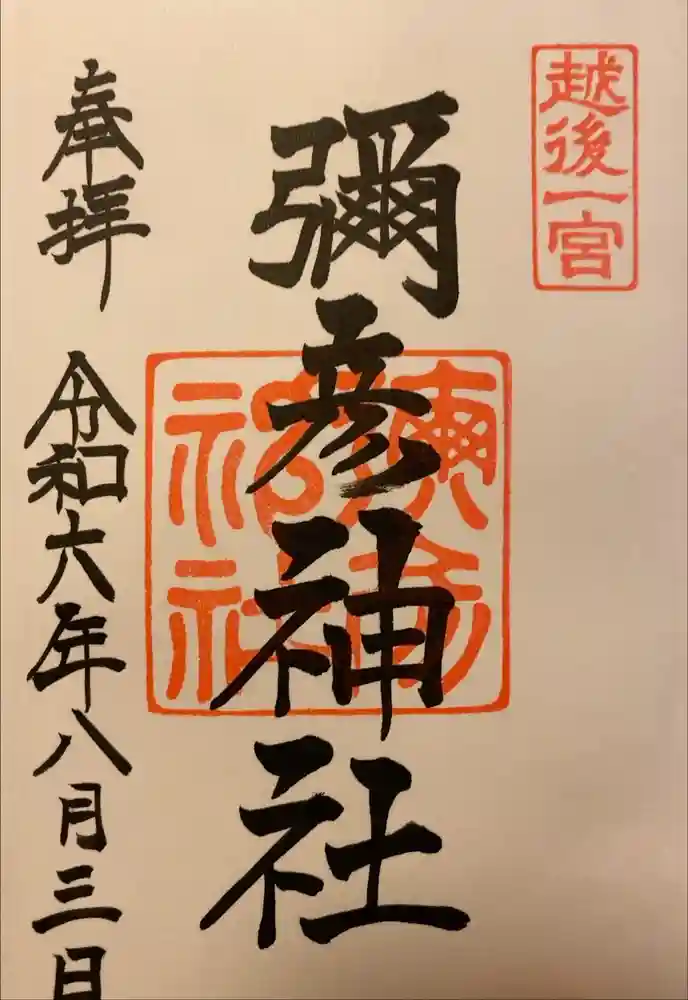 越後一宮
彌彦神社
彌彦神社
奉拝
令和六年八月三日